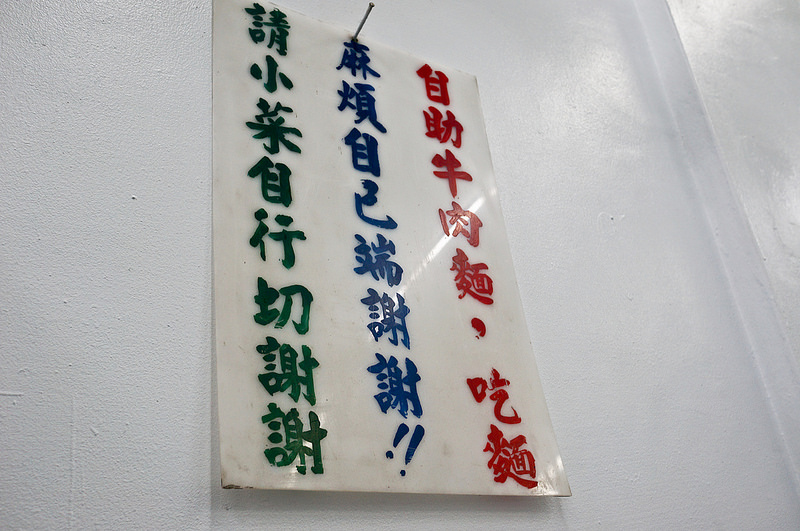 自助牛肉麵，吃麵
麻煩自己端謝謝!!
請小菜自行切謝謝